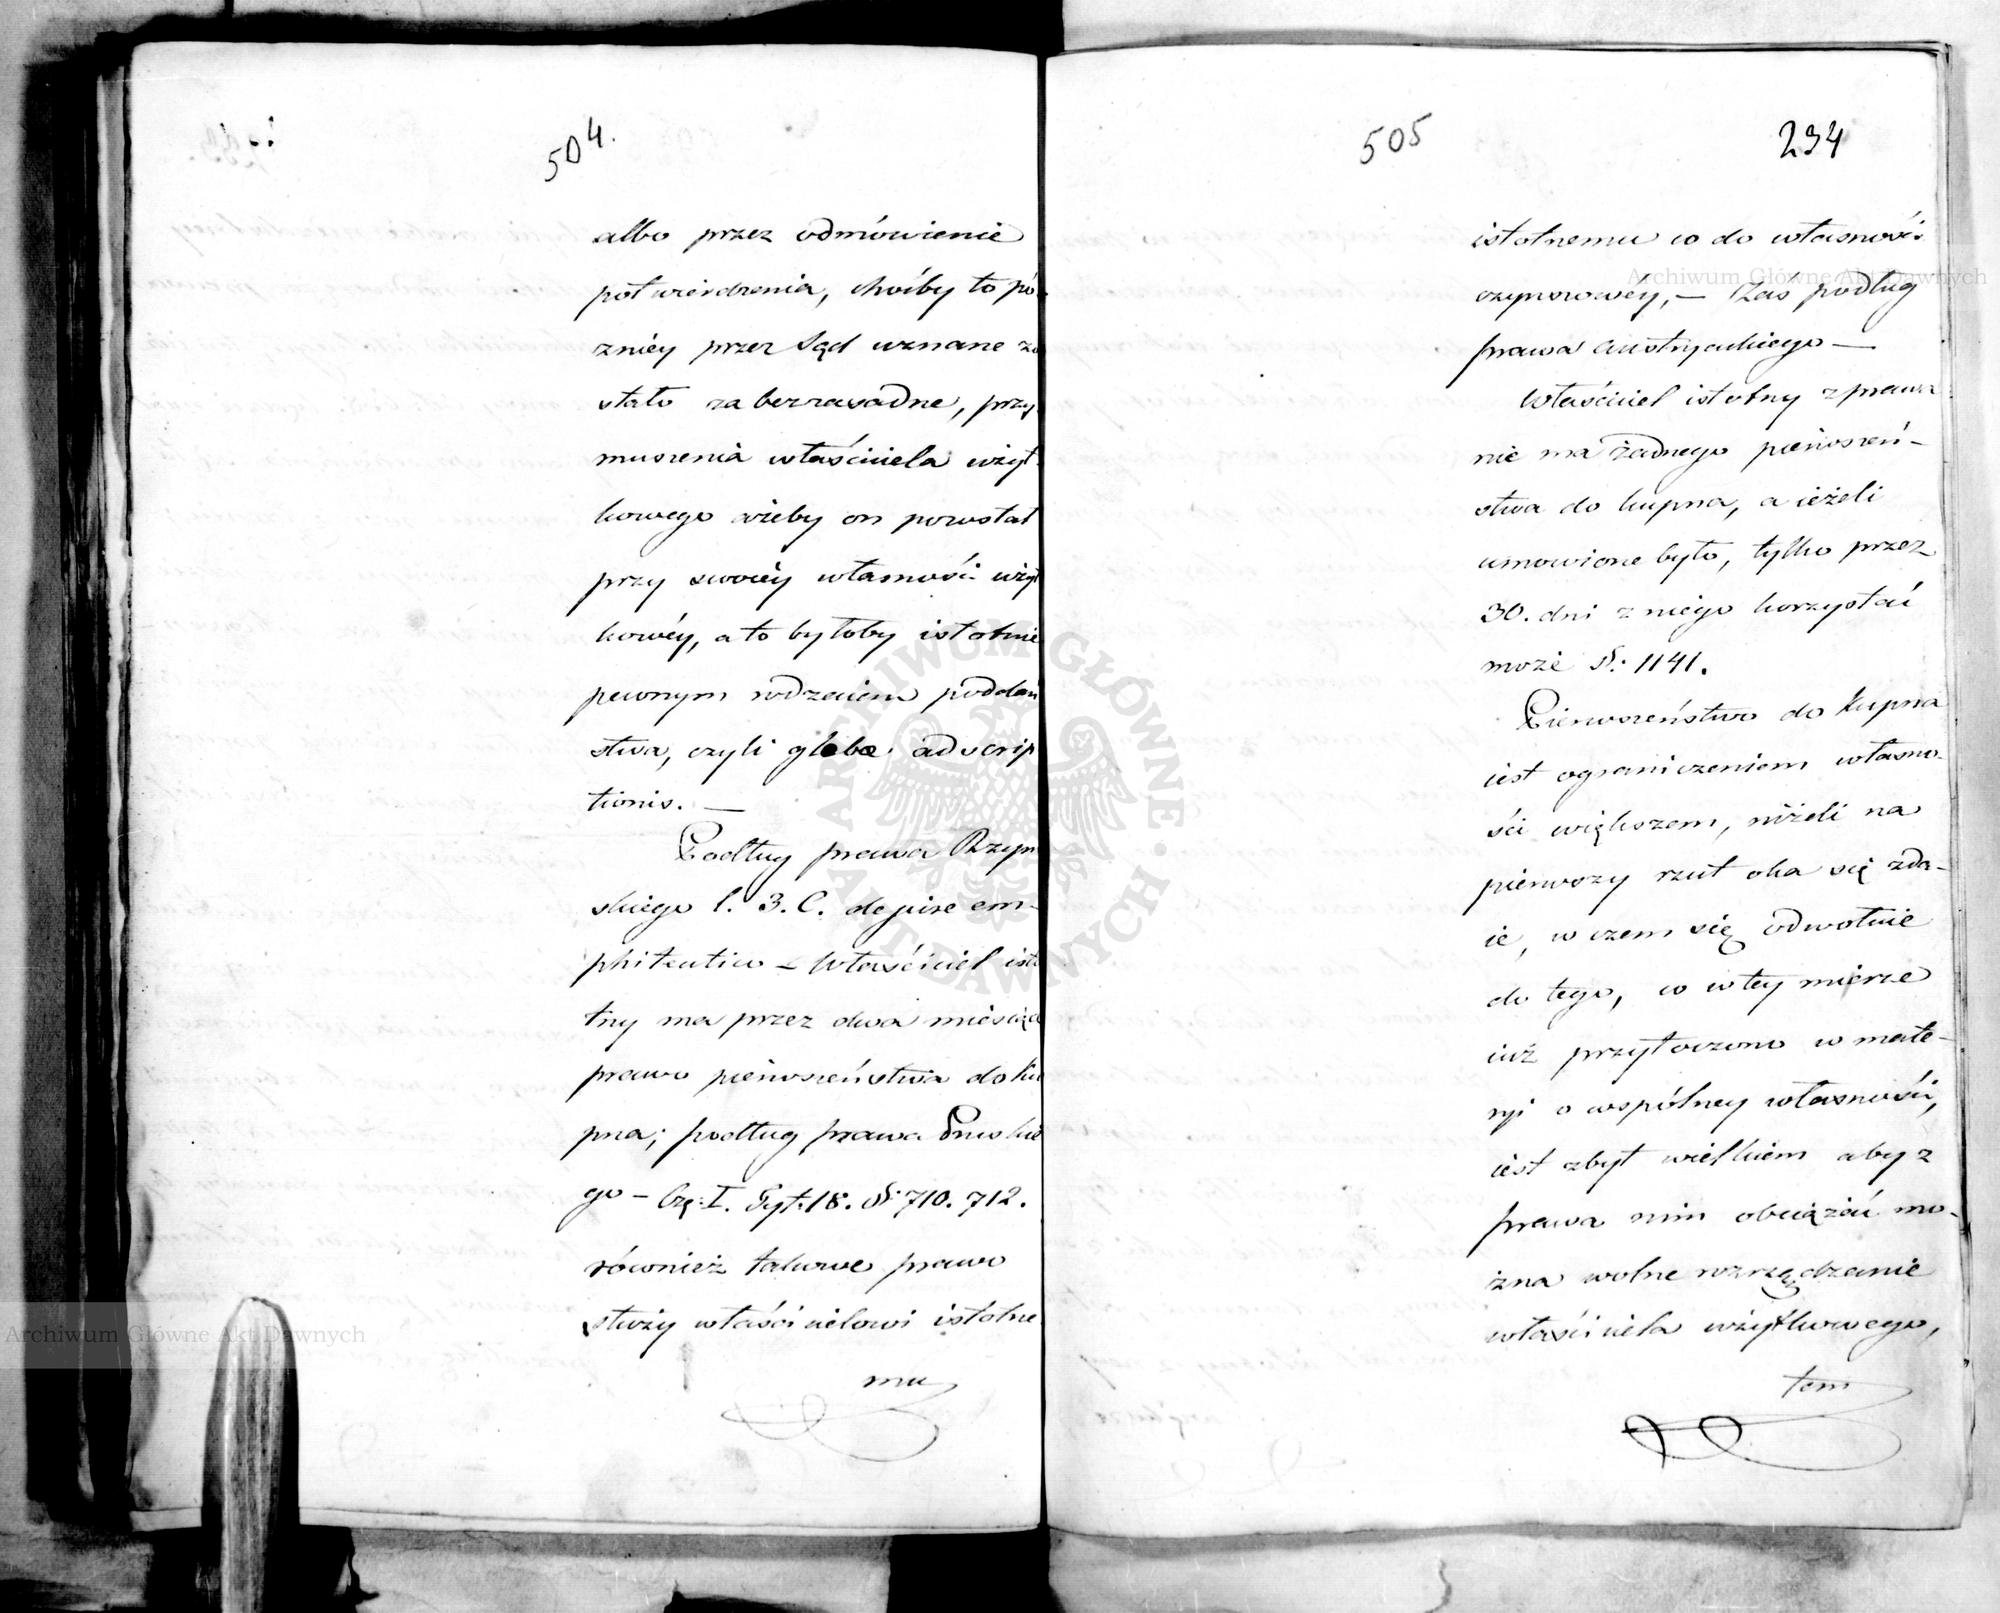 504.
albo przez odmówienie
potwierdzenia, choćby to pó-
zniéy przez Sąd uznane zo
stało za bezzasadne, przy-
muszenia właściciela użyt-
kowego ażeby on pozostał
przy swoiéy własności użyt
kowéy, a to byłoby istotnie
pewnym rodzaiem poddań
stwa, czyli glebæ adscrip
tionis. —
Podług prawa Rzym
skiego l. 3. C. de jure em-
phiteutico — Właściciel isto
tny ma przez dwa miesiąca
prawo pierwszeństwa do ku
pna; podług prawa Pruskie
go — Czę: I. Tyt: 18. §: 710. 712.
również takowe prawo
służy właścicielowi istotne
mu
505
234
istotnemu co do własności
czynszowey, — Zas podług
prawa Austryackiego —
Właściciel istotny z prawa
nie ma żadnego pierwszeń-
stwa do kupna, a ieżeli
umowione było, tylko przez
30. dni z niego korzystać
może §: 1141.
Pierwszeństwo do kupna
iest ograniczeniem własno-
ści większem, niżeli na
pierwszy rzut oka się zda-
ie, w czem się odwołuie
do tego, co w tey mierze
iuż przytoczono w mate-
ryi o wspólney własności,
iest zbyt wielkiem aby z
prawa nim obciążać mo-
żna wolne rozrządzanie
właściciela użytkowego,
tem
Archiwum Główne Akt Dawnych
Archiwum Główne Akt Dawnych
ARCHIWUM GŁÓWNE AKT DAWNYCH